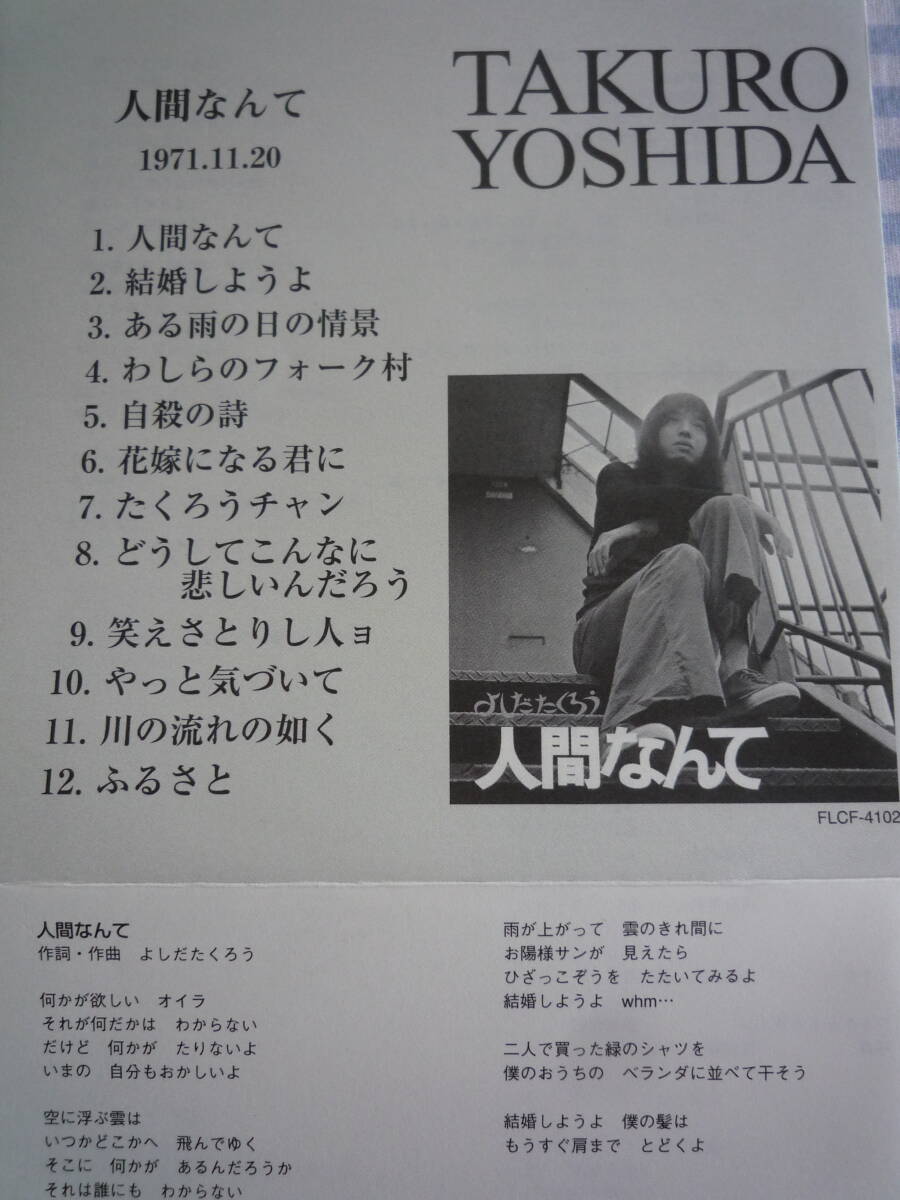 人間なんて
1971.11.20
1. 人間なんて
2. 結婚しようよ
3. ある雨の日の情景
4. わしらのフォーク村
5. 自殺の詩
6. 花嫁になる君に
7. たくろうチャン
8. どうしてこんなに
悲しいんだろう
9. 笑えさとりし人ョ
10. やっと気づいて
11. 川の流れの如く
12. ふるさと
TAKURO
YOSHIDA
よしだたくろう
人間なんて
FLCF-4102
人間なんて
作詞・作曲　よしだたくろう
何かが欲しい　オイラ
それが何だかは　わからない
だけど　何かが　たりないよ
いまの　自分もおかしいよ
空に浮ぶ雲は
いつかどこかへ　飛んでゆく
そこに　何かが　あるんだろうか
それは誰にも　わからない
雨が上がって　雲のきれ間に
お陽様サンが　見えたら
ひざっこぞうを　たたいてみるよ
結婚しようよ　whm…
二人で買った緑のシャツを
僕のおうちの　ベランダに並べて干そう
結婚しようよ　僕の髪は
もうすぐ肩まで　とどくよ